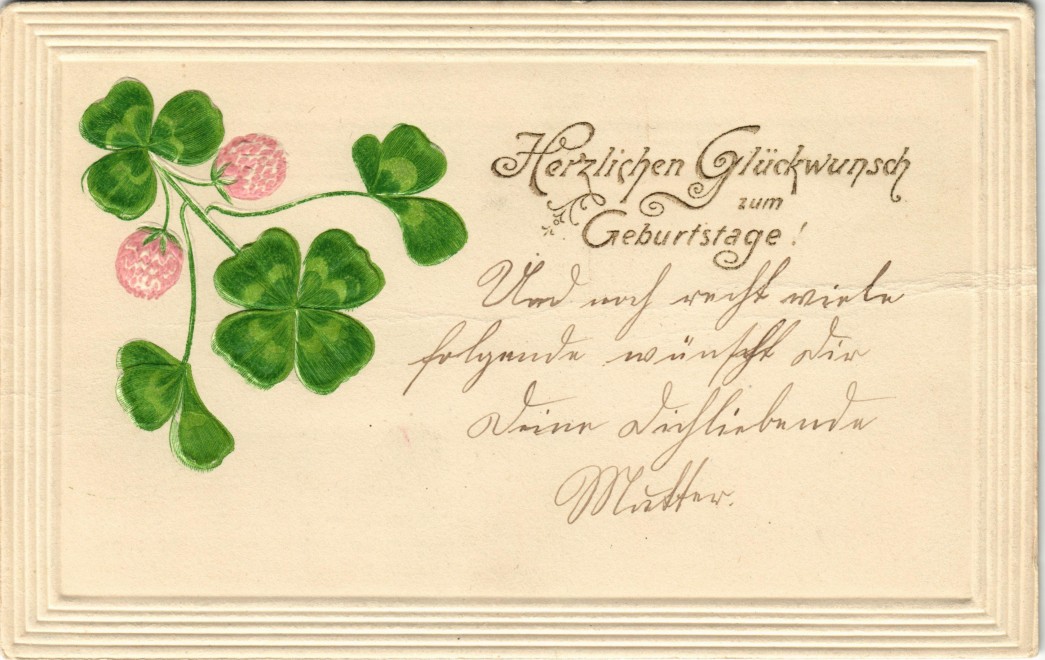 Herzlichen Glückwunsch
zum
Geburtstage!
Und noch recht viele
folgende wünscht Dir
Deine Dichliebende
Mutter.